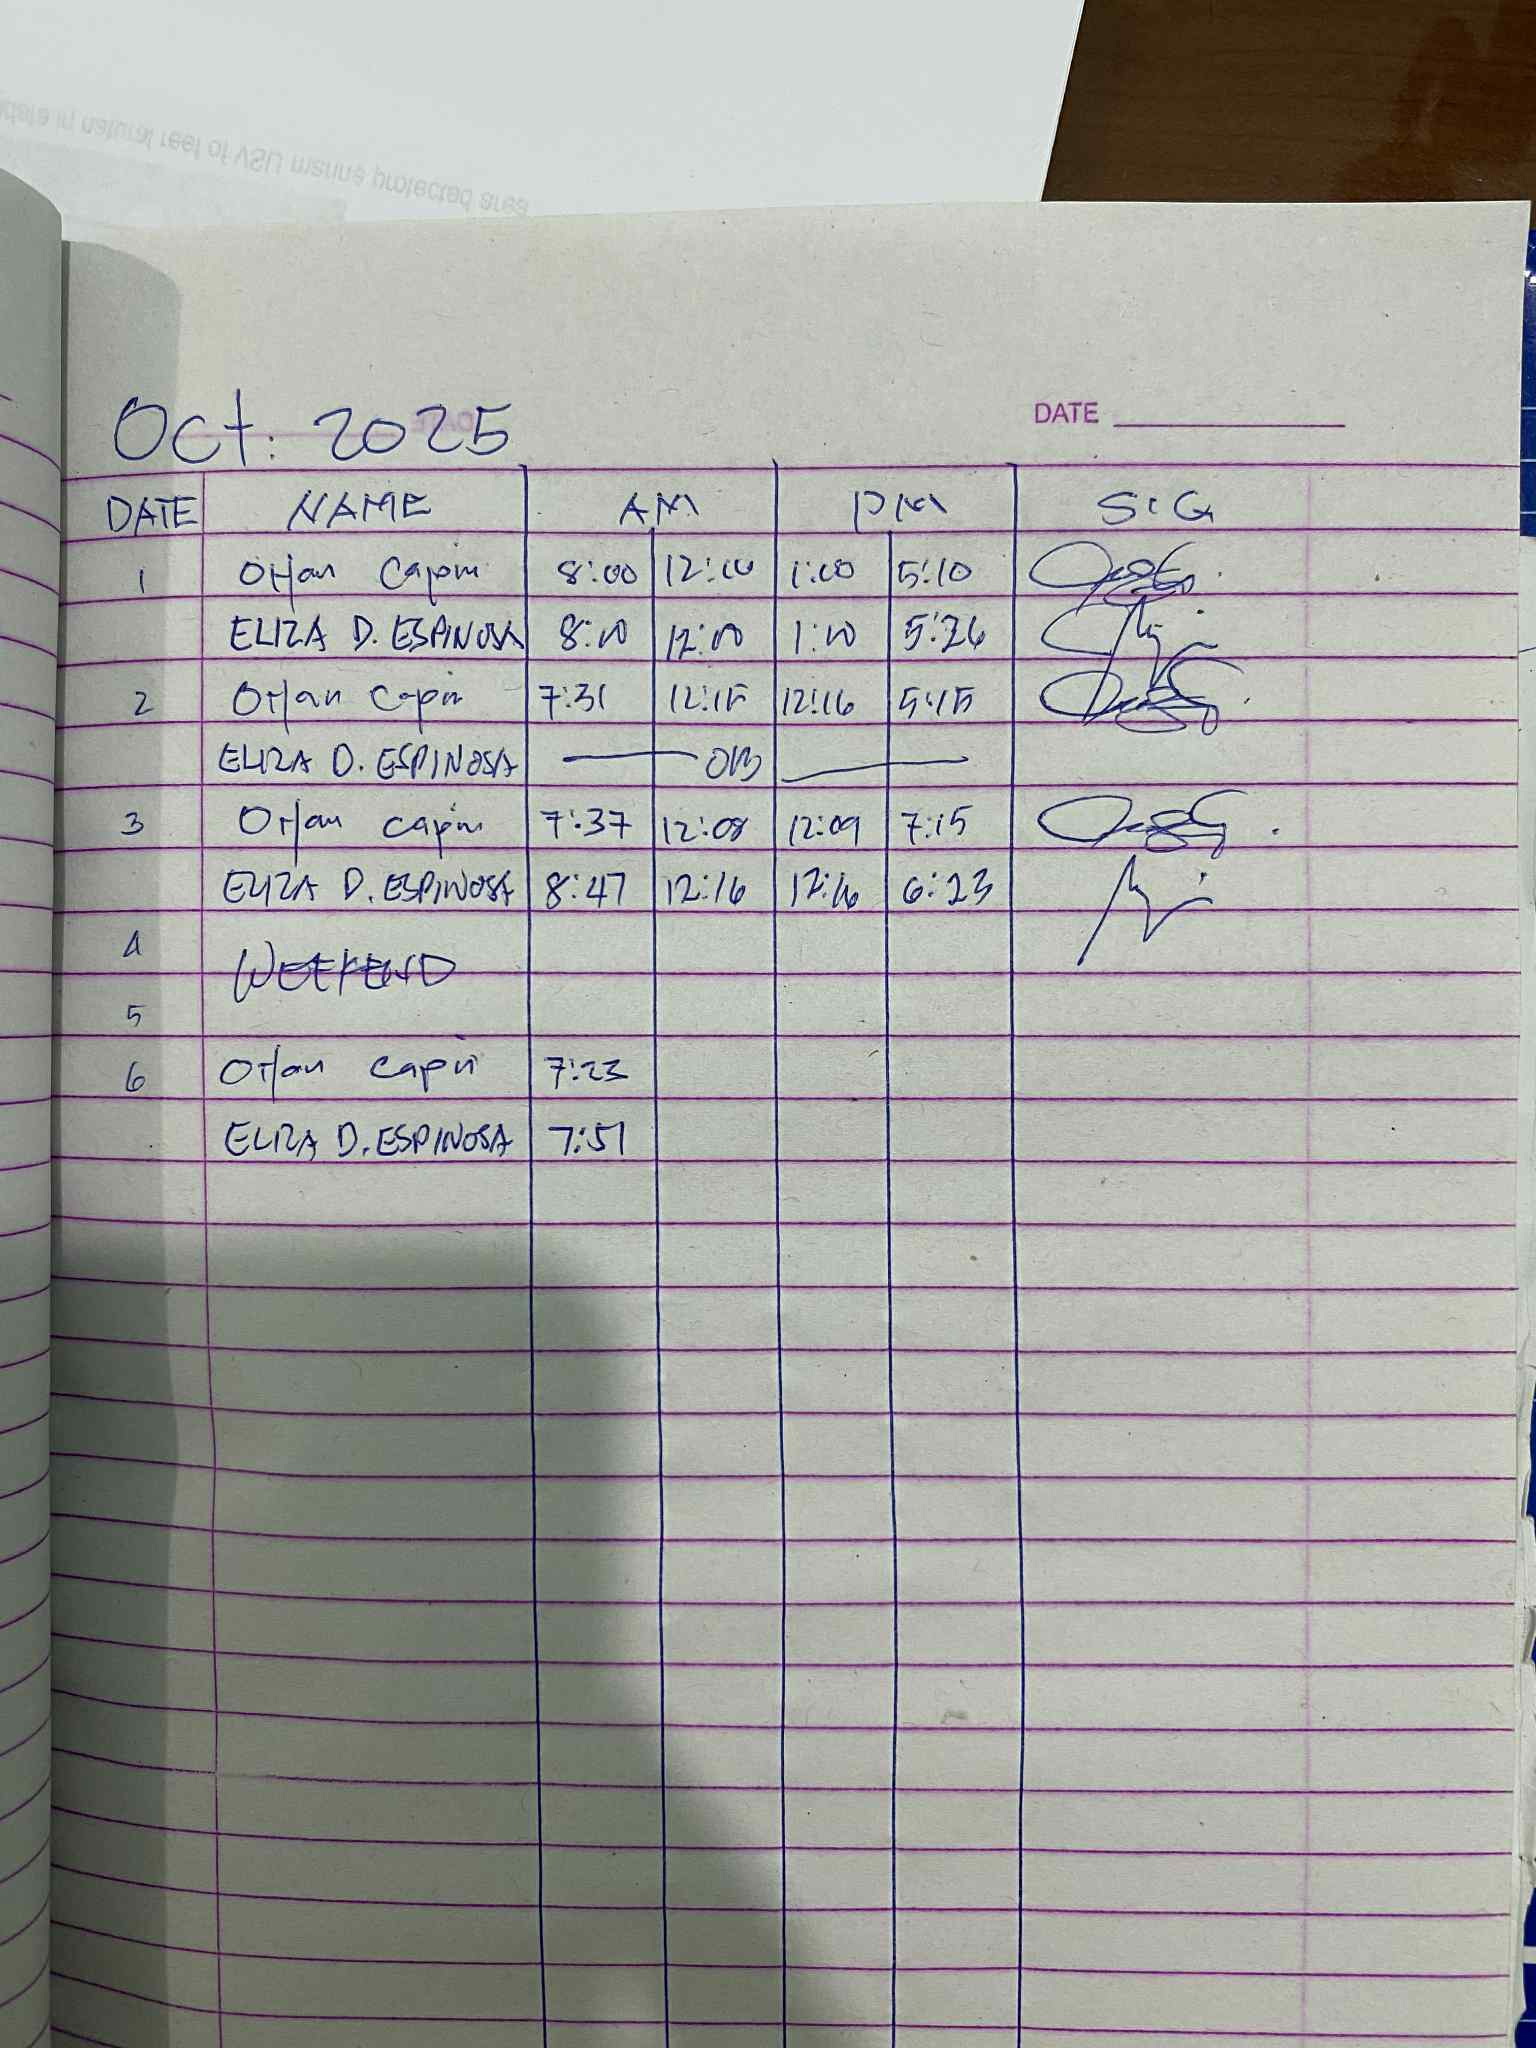 data in natural reef of VSU marine protected area
Oct. 2025
DATE
DATE NAME AM PM SIG
1 Orlan Capin 8:00 12:00 1:00 5:10
ELIZA D. ESPINOSA 8:00 12:00 1:00 5:26
2 Orlan Capin 7:31 12:15 12:16 5:15
ELIZA D. ESPINOSA OB
3 Orlan Capin 7:37 12:08 12:09 7:15
ELIZA D. ESPINOSA 8:47 12:16 12:16 6:23
4
WEEKEND
5
6 Orlan Capin 7:23
ELIZA D. ESPINOSA 7:51